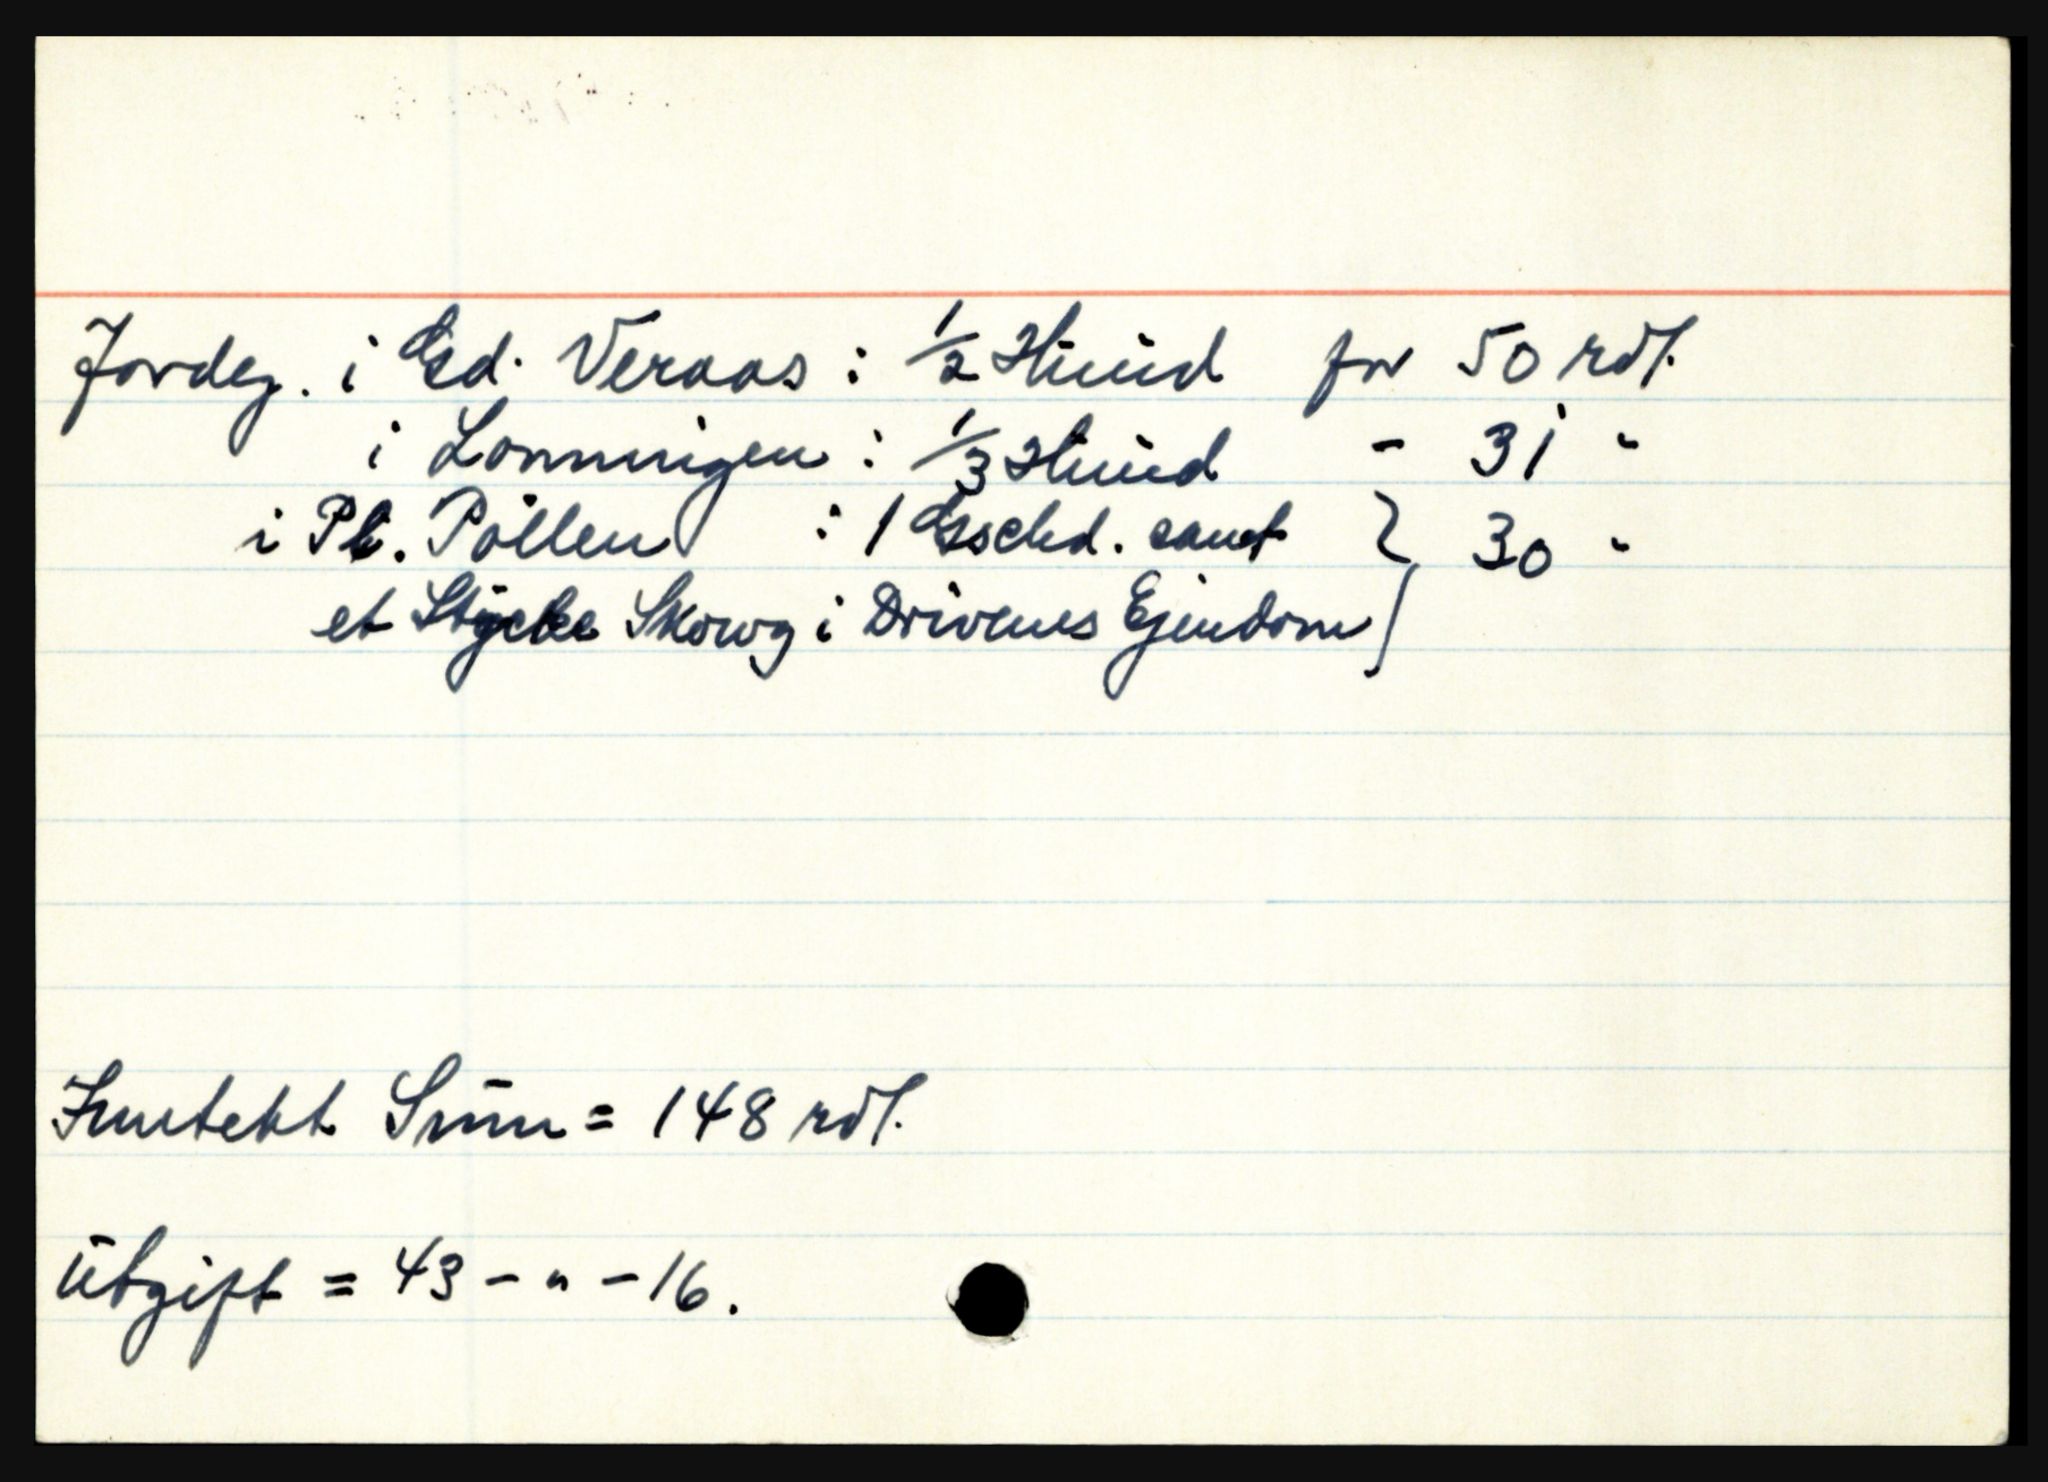 Jordeg. i Gd. Veraas : 1/2 Huud for 50 rdl.
i Lonningen : 1/3 Huud - 31 "
i Pl. Pollen : 1 Gschd. samt } 30 "
et Stycke Skowg i Drivenes Ejendom
Inntekt Sum = 148 rdl.
Utgift = 43 - " - 16.